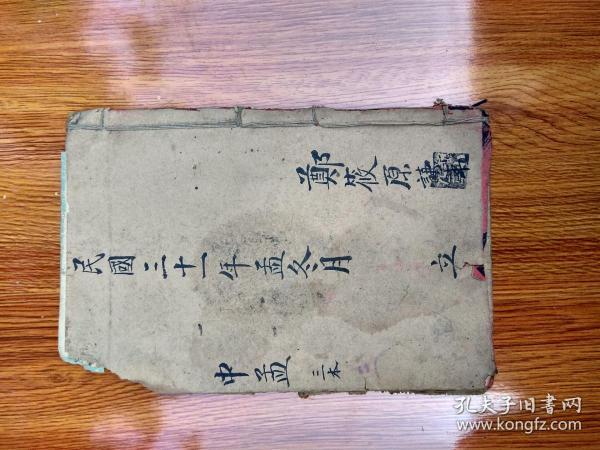 鄭筱原
民國三十一年孟冬月 立
中孟 三本
孔夫子旧书网
www.kongfz.com